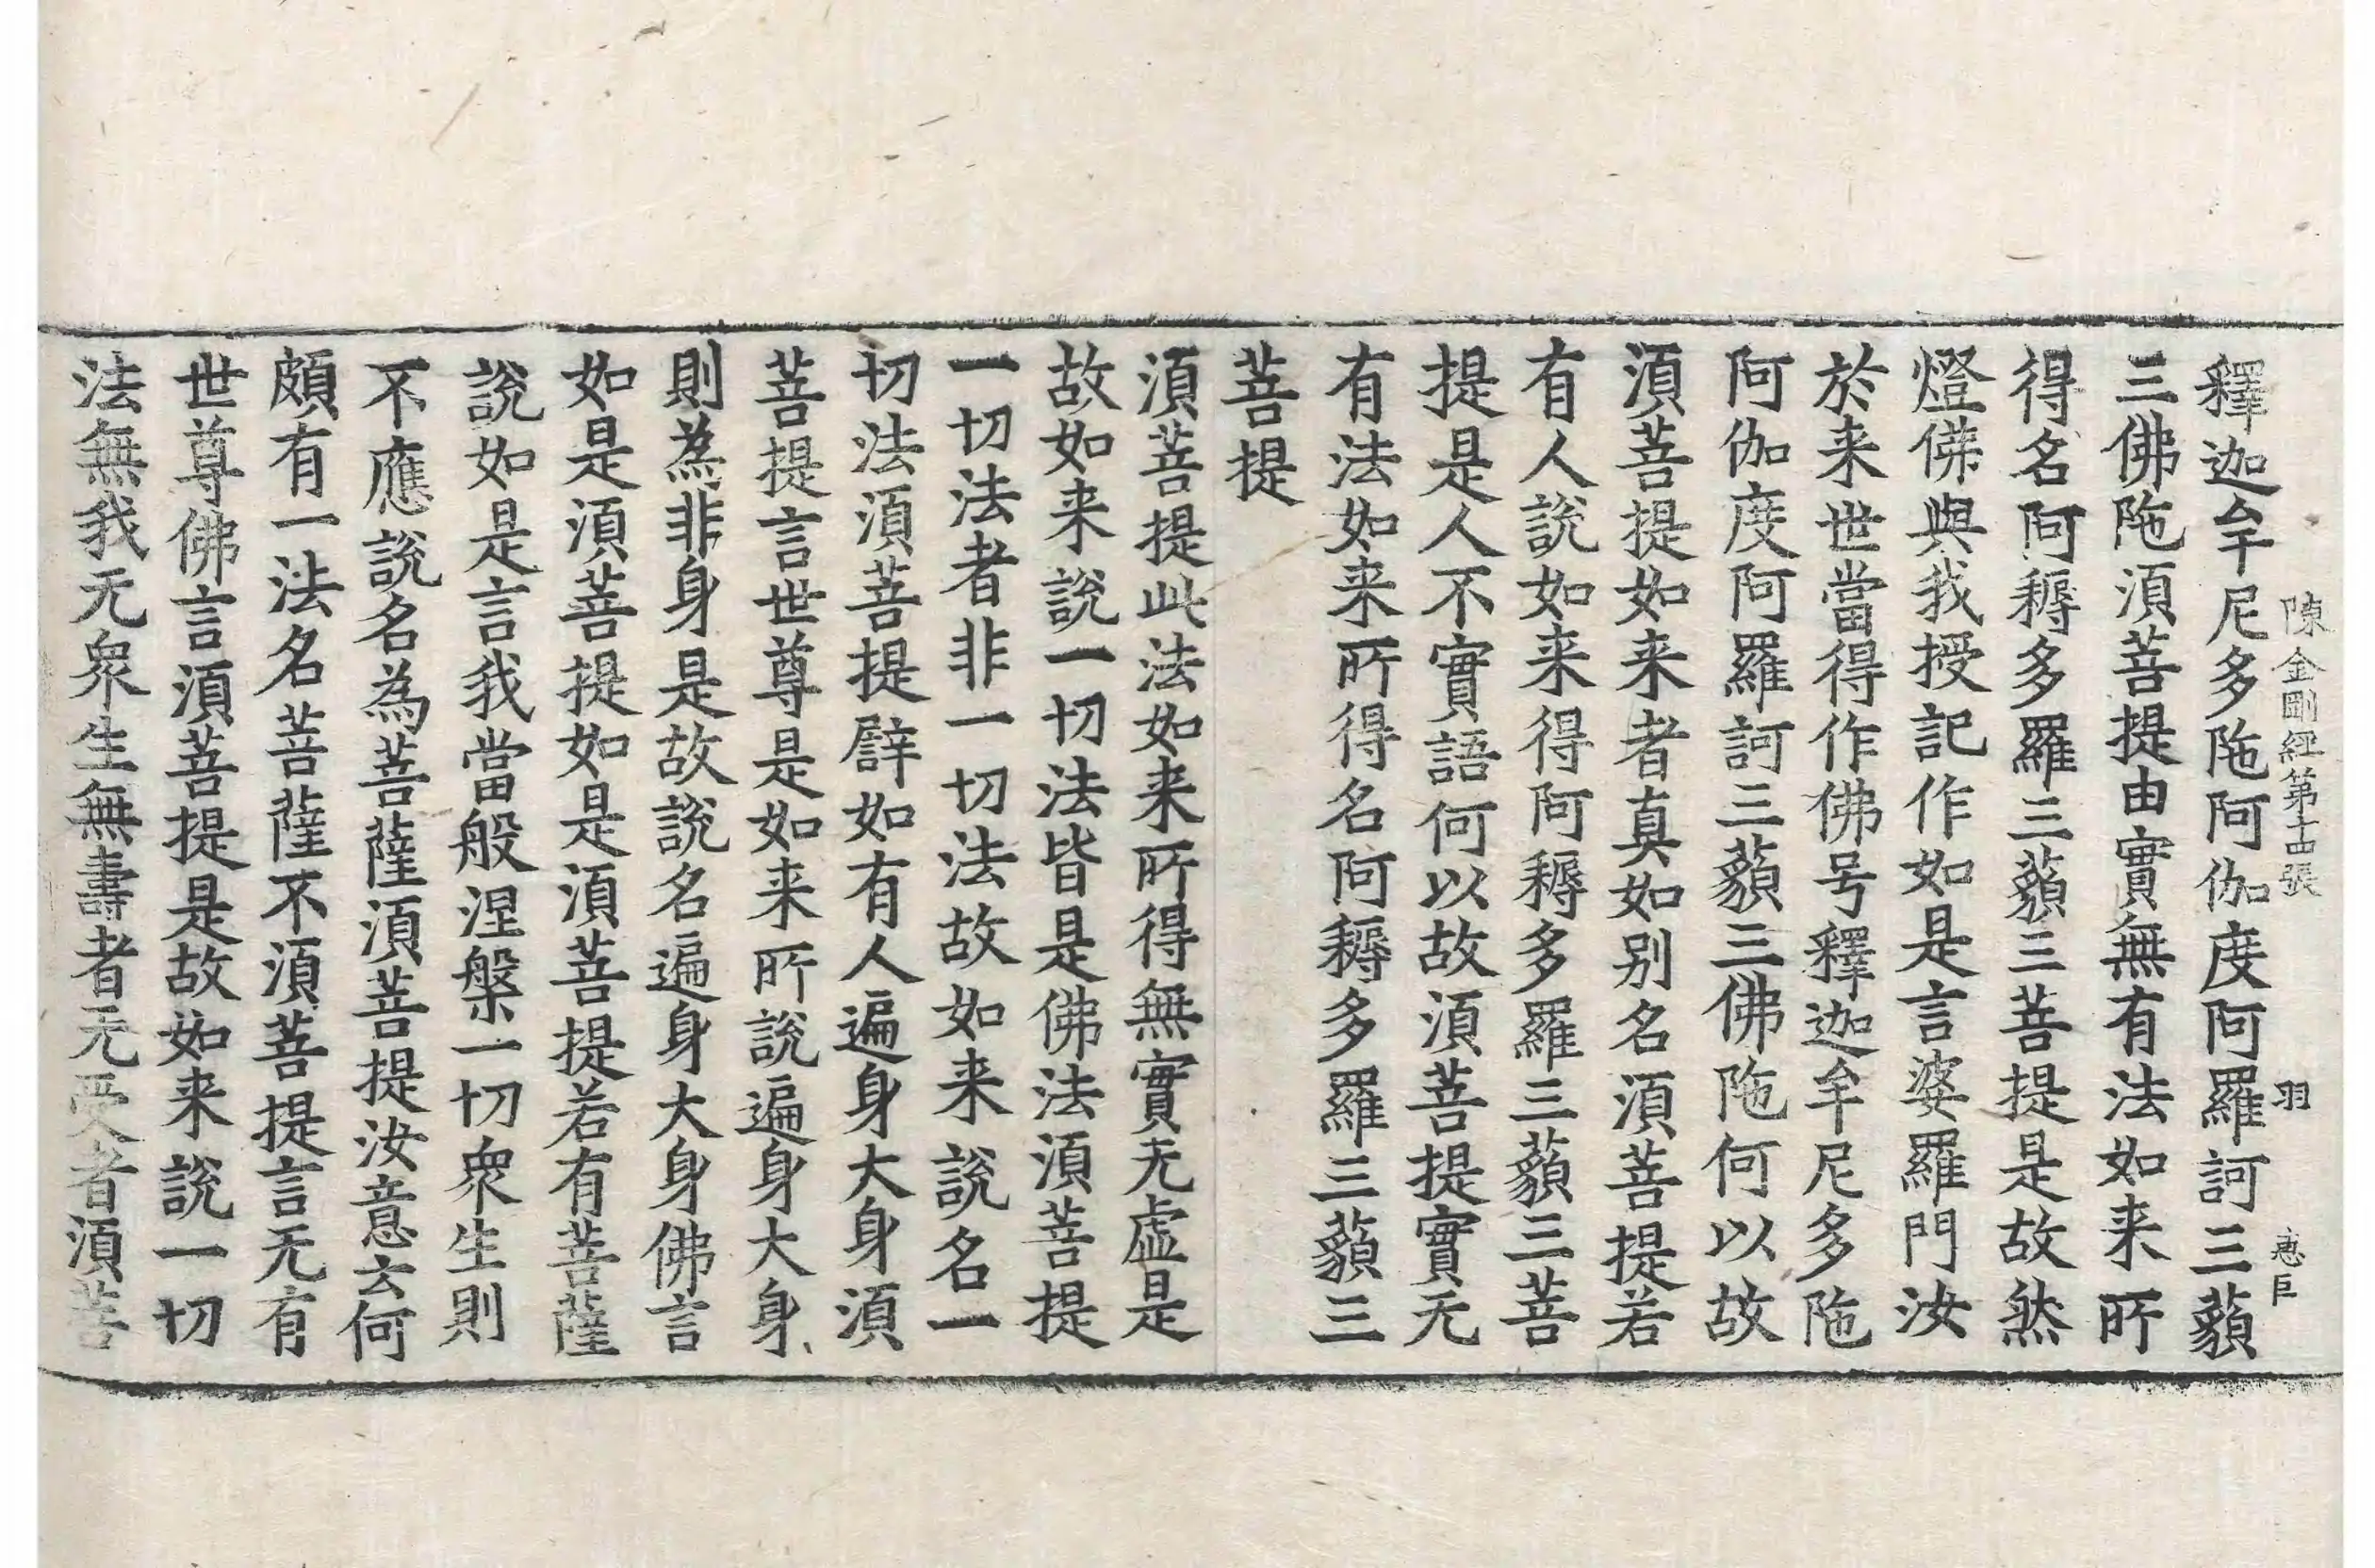 陳金剛經第十四張　羽　惠巨
釋迦牟尼多陁阿伽度阿羅訶三藐
三佛陁須菩提由實無有法如来所
得名阿耨多羅三藐三菩提是故然
燈佛與我授記作如是言婆羅門汝
於来世當得作佛号釋迦牟尼多陁
阿伽度阿羅訶三藐三佛陁何以故
須菩提如来者真如别名須菩提若
有人說如来得阿耨多羅三藐三菩
提是人不實語何以故須菩提實无
有法如来所得名阿耨多羅三藐三
菩提
須菩提此法如来所得無實无虛是
故如来說一切法皆是佛法須菩提
一切法者非一切法故如来說名一
切法須菩提譬如有人遍身大身須
菩提言世尊是如来所說遍身大身
則為非身是故說名遍身大身佛言
如是須菩提如是須菩提若有菩薩
說如是言我當般涅槃一切衆生則
不應說名為菩薩須菩提汝意云何
頗有一法名菩薩不須菩提言无有
世尊佛言須菩提是故如来說一切
法無我无衆生無壽者无受者須菩